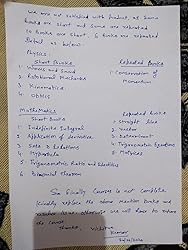 We are not satisfied with product, as some
Books are short and some are repeated
10 Books are short. 6 Books are repeated
Detail as below:
Physics:
Short Books Repeated Books
1. Waves and Sound 1. Conservation of
2. Rotational Mechanics Momentum
3. Kinematics
4. Optics
Mathematics
Short Books Repeated Books
1. Indefinite Integral 1. Straight line
2. Application of derivative 2. Vector
3. Sets & Relations 3. Determinant
4. Hyperbola 4. Trigonometric Equations
5. Trigonometric Ratio and Identities 5. Matrices
6. Binomial Theorem
So finally Course is not complete.
Kindly replace the above mention Books and
otherwise we will have to return
the course.
Thanks,
Kumar